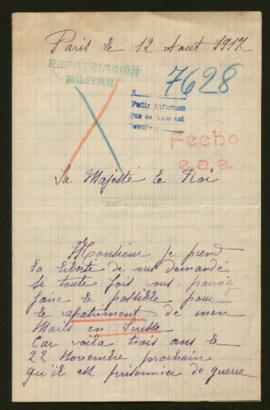 Paris le 12 Aout 1917
REPATRIACIÓN
MILITAR
7628
Pedir informes
que se hace así
Fecho
Sa Majesté Le Roi
Monsieur Je prend
la liberté de vous demandé
si toute fois vous pouvez
faire le possible pour
le rapatriment de mon
Mari en Suisse
Car voila trois ans le
22 Novembre prochain
qu'il est prisonnier de guerre